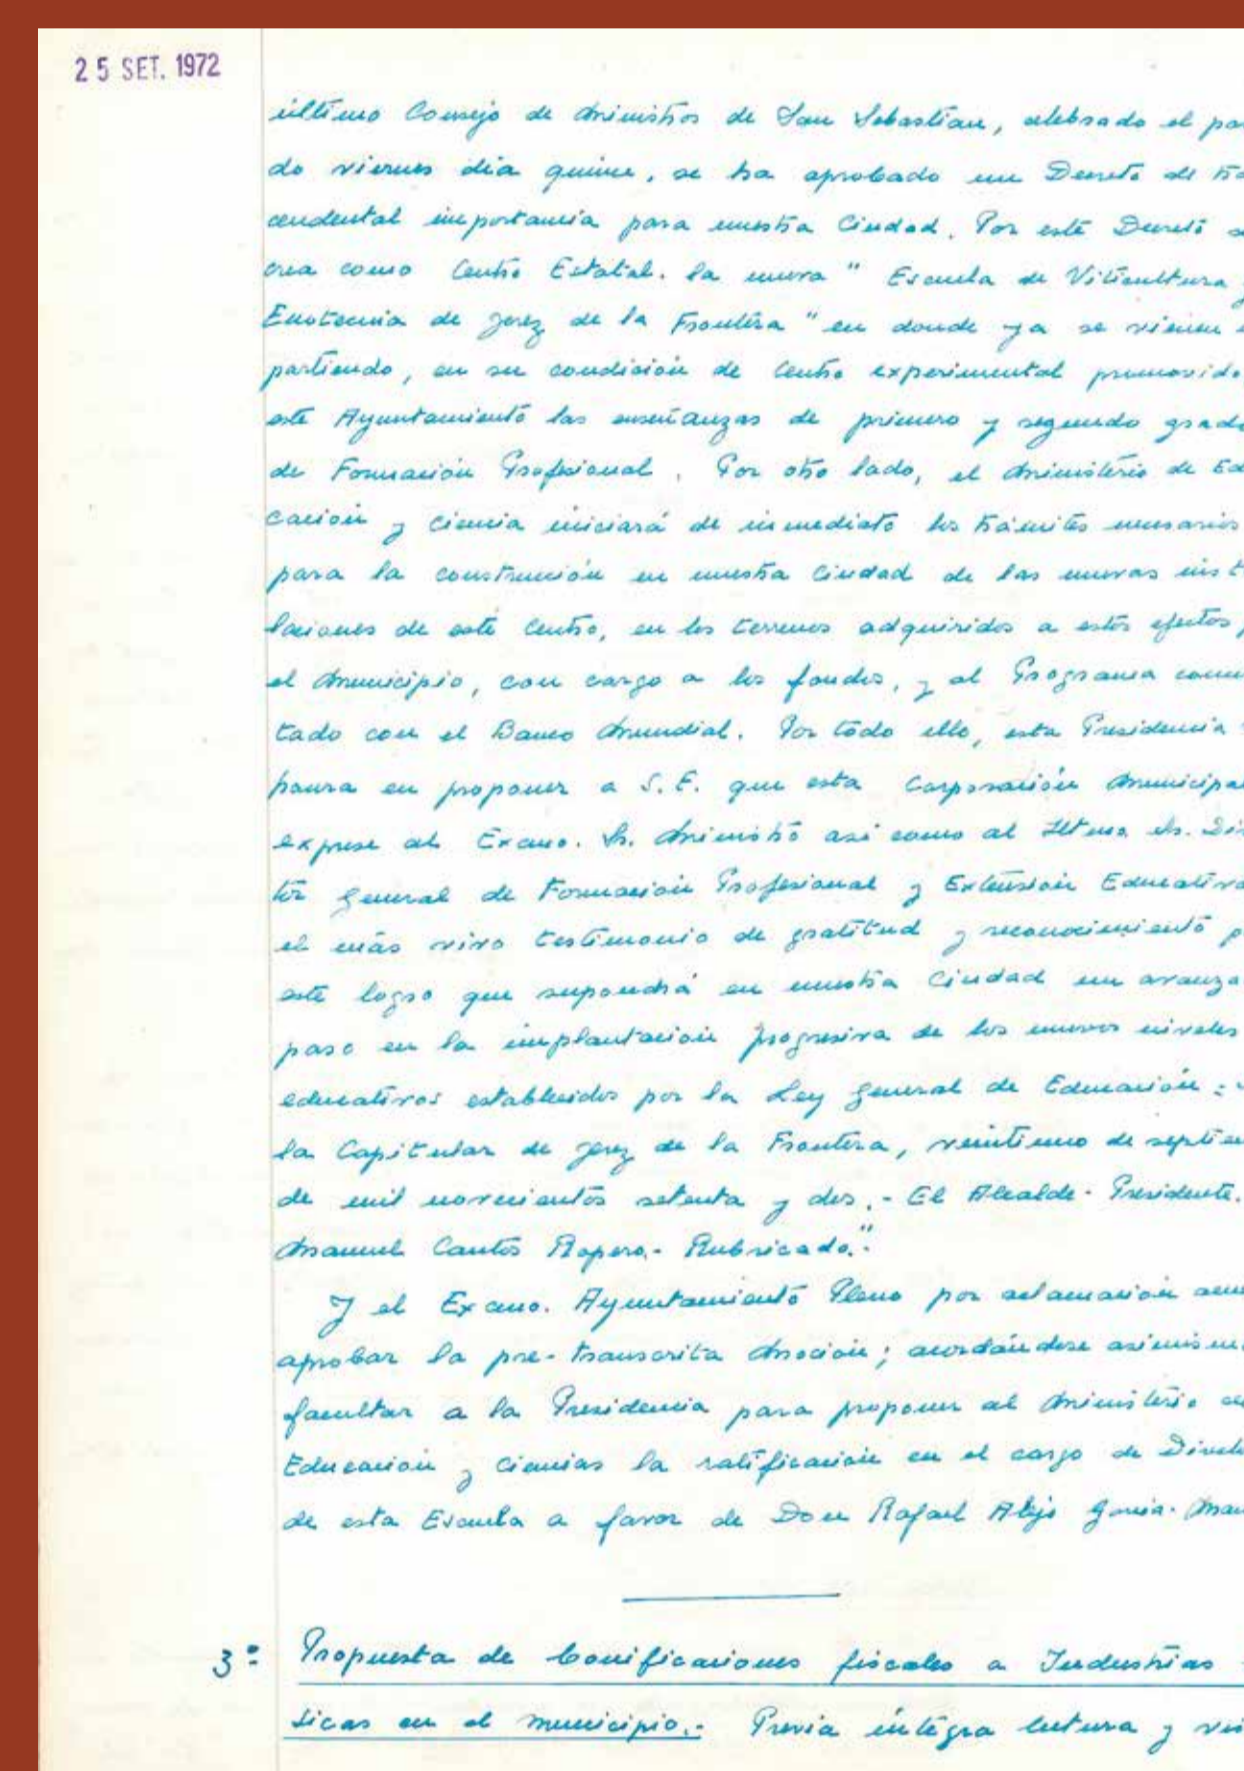 25 SET. 1972
último Consejo de Ministros de San Sebastian, celebrado el pa
do viernes día quince, se ha aprobado un Decreto de tra
cendental importancia para nuestra Ciudad. Por este Decreto se
crea como Centro Estatal. la nueva "Escuela de Viticultura y
Enotecnia de Jerez de la Frontera" en donde ya se vienen
partiendo, en su condición de Centro experimental promovido
este Ayuntamiento las enseñanzas de primero y segundo grado
de Formación Profesional. Por otro lado, el Ministerio de Edu
cación y Ciencia iniciará de inmediato los trámites necesarios
para la construcción en nuestra Ciudad de las nuevas inst
laciones de este Centro, en los terrenos adquiridos a estos efectos
el Municipio, con cargo a los fondos, y al Programa conc
tado con el Banco Mundial. Por todo ello, esta Presidencia
honra en proponer a S.E. que esta Corporación Municipal
exprese al Excmo. Sr. Ministro asi como al Iltmo. Sr. Dir
tor General de Formación Profesional y Extensión Educativa
el más vivo testimonio de gratitud y reconocimiento p
este logro que supondrá en nuestra Ciudad un avanza
paso en la implantación progresiva de los nuevos niveles
educativos establecidos por la Ley General de Educación:
la Capitular de Jerez de la Frontera, veintiuno de septiem
de mil novecientos setenta y dos.- El Alcalde-Presidente.
Manuel Cantos Ropero.- Rubricado.".
Y el Excmo. Ayuntamiento Pleno por aclamación acu
aprobar la pre-transcrita Moción; acordándose asimism
facultar a la Presidencia para proponer al Ministerio de
Educación y Ciencias la ratificación en el cargo de Direc
de esta Escuela a favor de Don Rafael Alejo García-Mau
3º- Propuesta de bonificaciones fiscales a Industrias
sicas en el municipio.- Previa íntegra lectura y vis